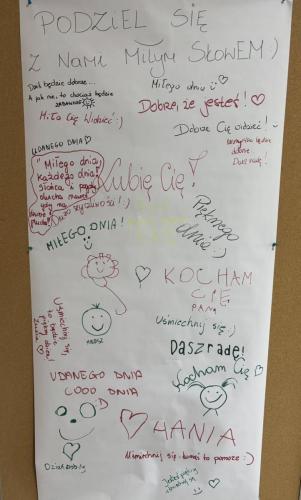 PODZIEL SIĘ
Z NAMI MIŁYM SŁOWEM :)
Dziś będzie dobrze...
A jak nie, to chociaż będzie
zabawnie
Miłego dnia
Miło Cię widzieć :)
Dobrze, że jesteś!
Dobrze Cię widzieć!
Wszystko będzie
dobrze
Dasz radę!
UDANEGO DNIA
"Miłego dnia,
każdego dnia,
słońca i
Lubię Cię!
Pięknego
dnia :)
MIŁEGO DNIA!
KOCHAM
CIĘ
PANA
Uśmiechnij się :)
Uśmiechnij się,
Daszradę!
Kocham Cię
UDANEGO DNIA
COOO DNIA
HANIA
Uśmiechnij się - komuś to pomoże :)
Jesteś piękny